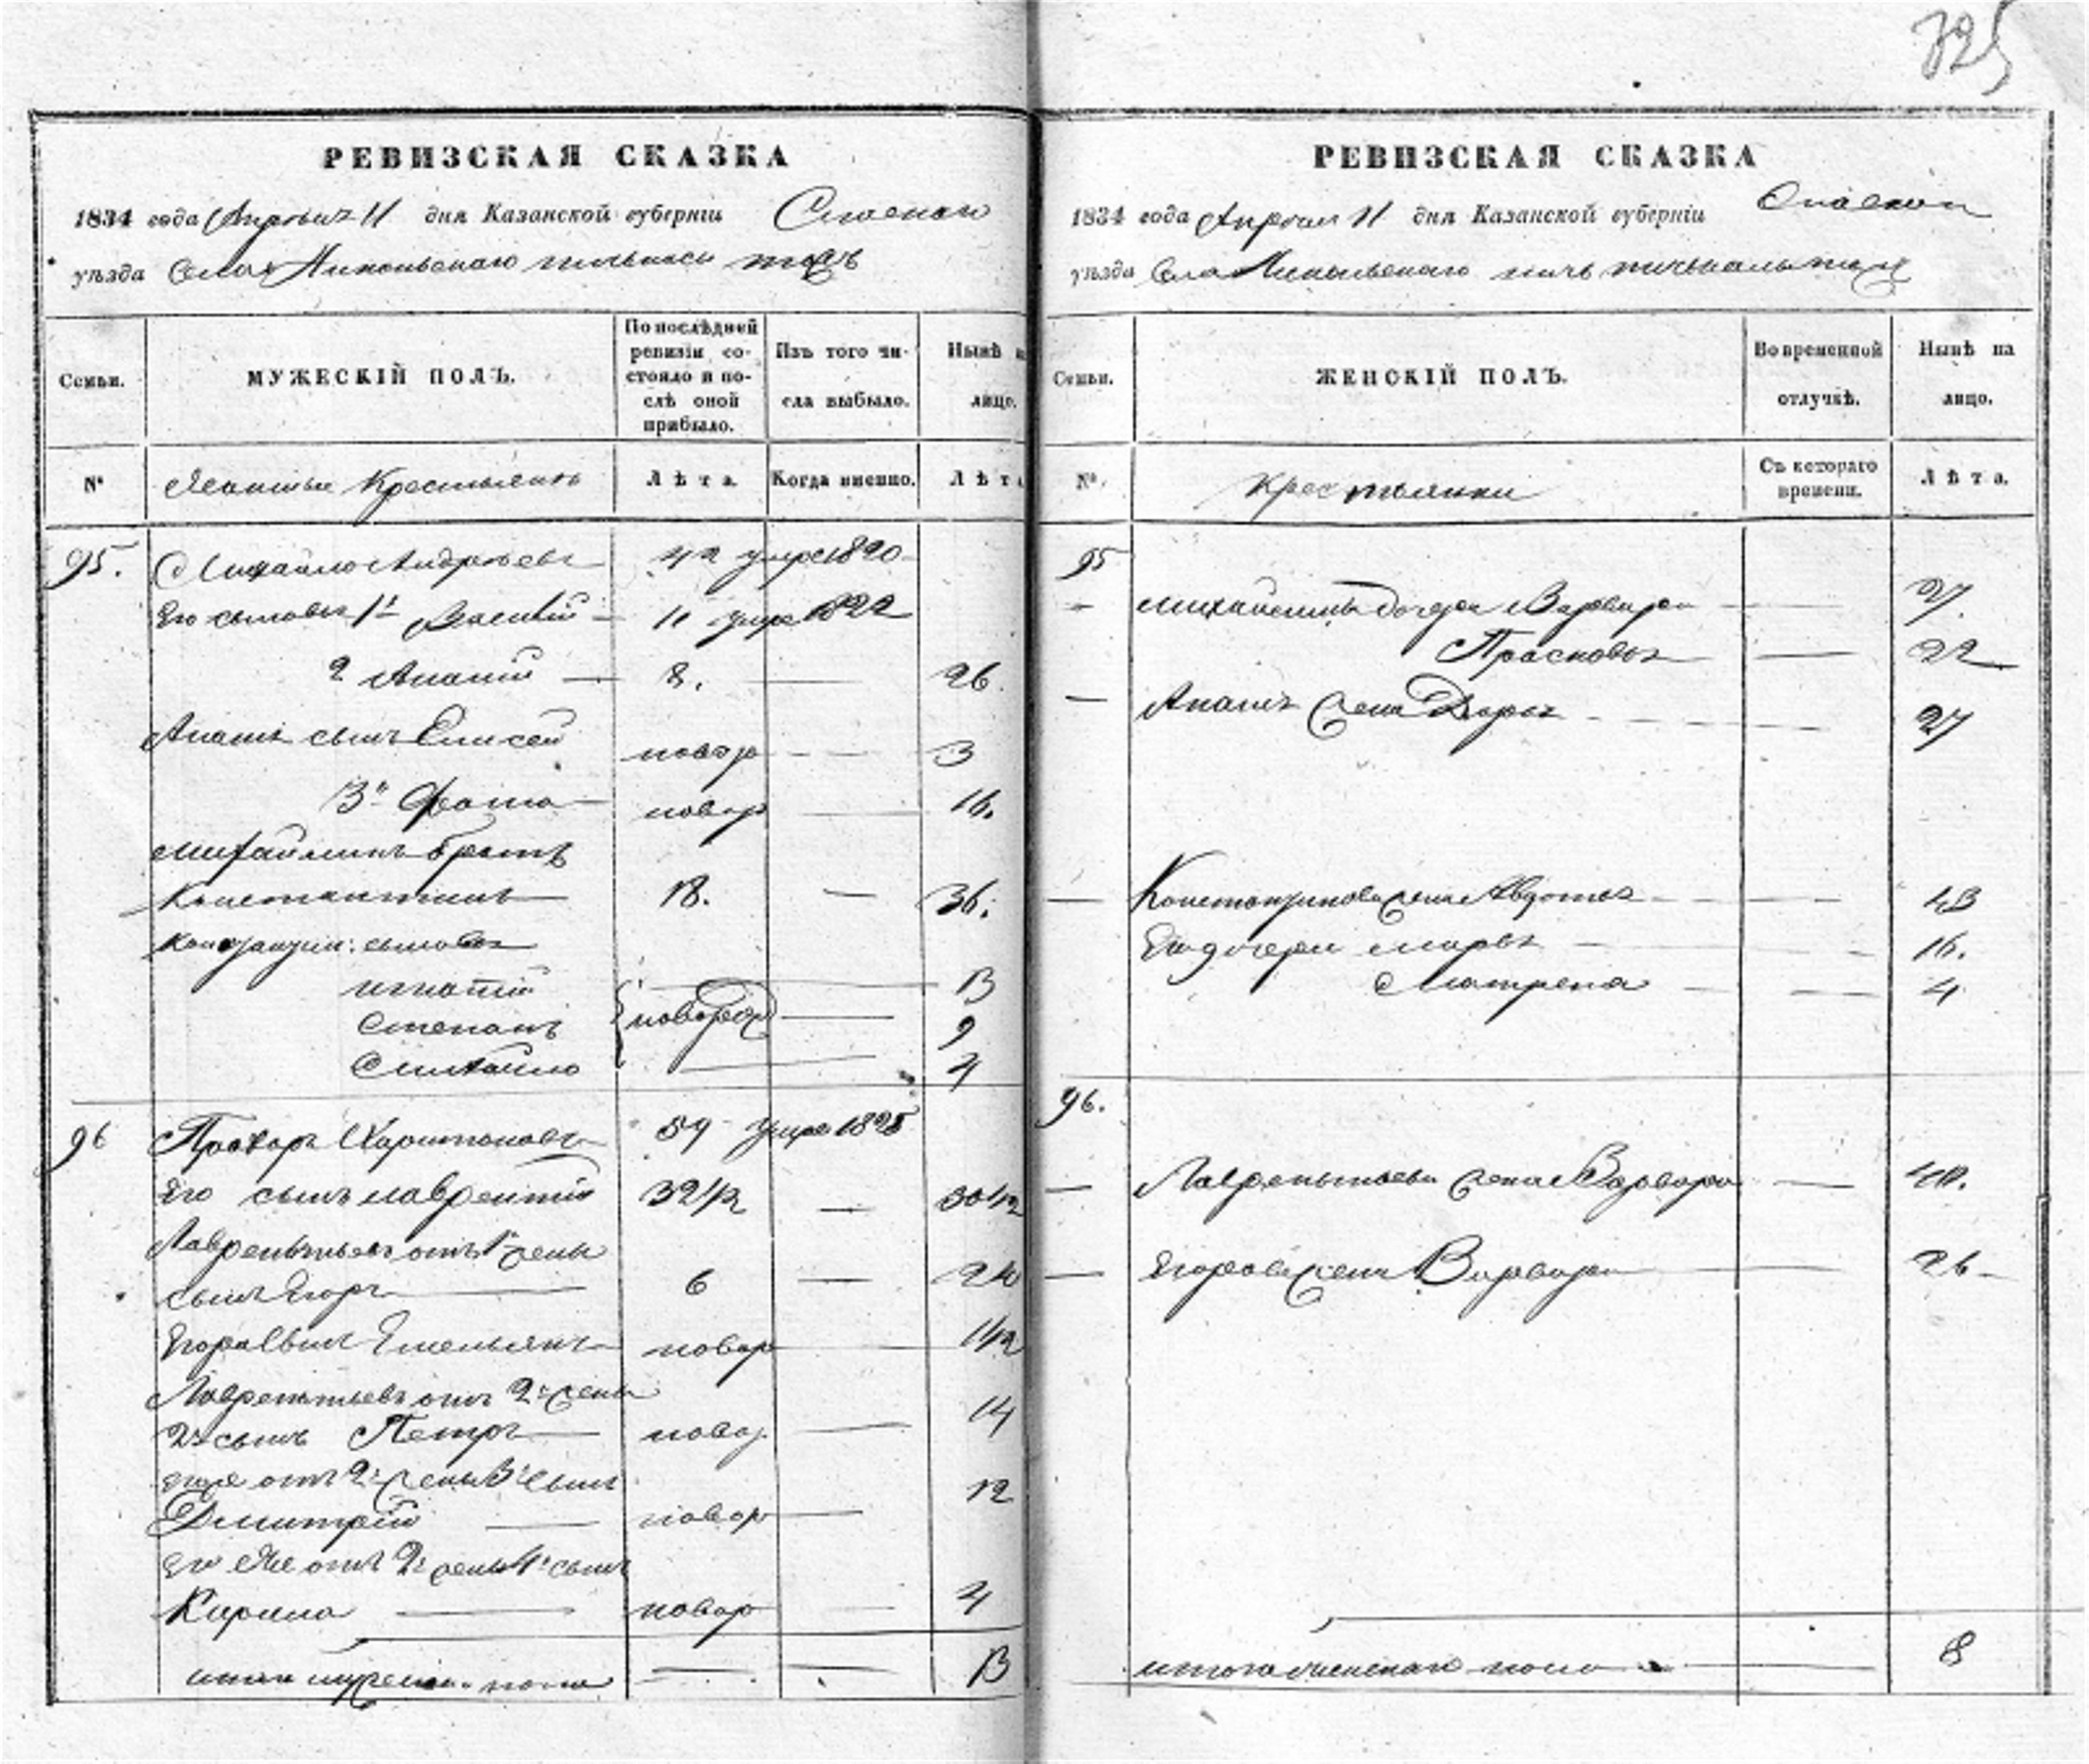 325
РЕВИЗСКАЯ СКАЗКА
1834 года Апреля 11 дня Казанской губерніи Спаскаго
уѣзда Села Никольскаго тожъ
Семьи.
МУЖЕСКІЙ ПОЛЪ.
По послѣдней ревизіи состояло и послѣ оной прибыло.
Изъ того числа выбыло.
Нынѣ на лицо.
№
Крестьянъ
Лѣта.
Когда именно.
Лѣта
95. Михайло Андреевъ 42 умре 1820
Его сыновья 1й Василій 11 умре 1822
2 Ананій 8. 26.
Ананія сынъ Елисей новор 3
3й Фома новор 16.
Михайлинъ братъ
Константинъ 18. 36.
Констанзин: сыновья
Игнатій 13
Степанъ новорож 9
Михайло 4
96 Прохоръ Харитоновъ 59 умре 1825
Его сынъ Лаврентій 32 1/2 50 1/2
Лаврентьевъ отъ 1й жены
сынъ Егоръ 6 24
Егора сынъ Емельянъ новор 1/2
Лаврентьевъ отъ 2й жены
2й сынъ Петръ новор 14
его же отъ 2й жены 3й сынъ
Дмитрій новор 12
Его же отъ 2й жены 4й сынъ
Кирила новор 4
итого мужеска пола 13
РЕВИЗСКАЯ СКАЗКА
1834 года Апреля 11 дня Казанской губерніи Спаскаго
уѣзда Села Никольскаго тожъ
Семьи.
ЖЕНСКІЙ ПОЛЪ.
Во временной отлучкѣ.
Нынѣ на лицо.
№.
Крестьянки
Съ котораго времени.
Лѣта.
95
Михайлины дочери Варвара 27.
Прасковья 22
Ананія жена Дарья 27
Константинова жена Авдотья 43
Его дочери Марья 16.
Матрена 4
96.
Лаврентьева жена Варвара 40.
Егорова жена Варвара 26
итого женскаго пола 8